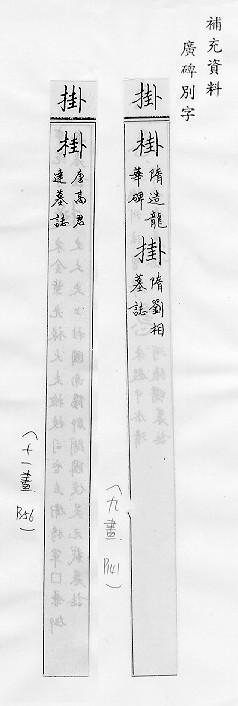 補充資料
廣碑別字
掛
掛
隋造龍
華碑
掛
隋劉相
墓誌
(九畫 P141)
掛
掛
唐高君
達墓誌
(十一畫 P.56)